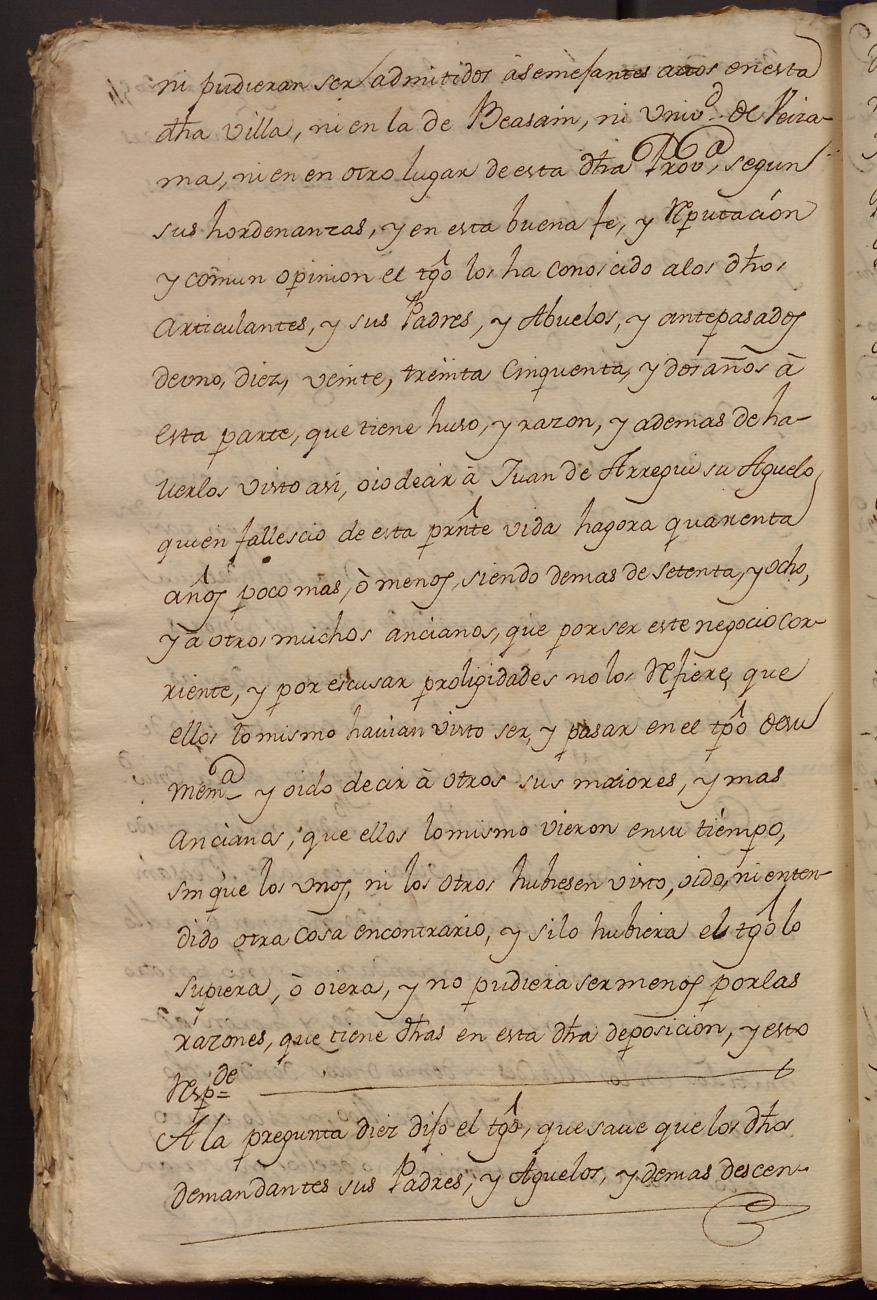 ni pudieran ser admitidos à semejantes actos en esta
dha villa, ni en la de Beasain, ni Univ.d de Veiza-
ma, ni en en otro lugar de esta dha Prov.a, segun
sus hordenanzas, y en esta buena fe, y Reputación
y comun opinion el tgo los ha conoscido a los dhos
articulantes, y sus Padres, y Abuelos, y antepasados
de uno, diez, veinte, treinta cinquenta, y dos años à
esta parte, que tiene huso, y razon, y ademas de ha-
verlos visto asi, oio decir à Juan de Arregui su Aguelo
quien fallescio de esta prnte vida hagora quarenta
años poco mas, ò menos, siendo demas de setenta, y ocho,
y a otros muchos ancianos, que por ser este negocio cor-
riente, y por escusar proligidades no los Refiere, que
ellos lo mismo havian visto ser, y pasar en el tpo de su
mem.a y oido decir à otros sus maiores, y mas
ancianos, que ellos lo mismo vieron en su tiempo,
sin que los unos, ni los otros hubiesen visto, oido, ni enten-
dido otra cosa en contrario, y si lo hubiera el tgo lo
supiera, ò oiera, y no pudiera ser menos por las
razones, que tiene dhas en esta dha deposicion, y esto
Resp.de
A la pregunta diez dijo el tgo, que save que los dhos
demandantes sus Padres, y Aguelos, y demas descen-